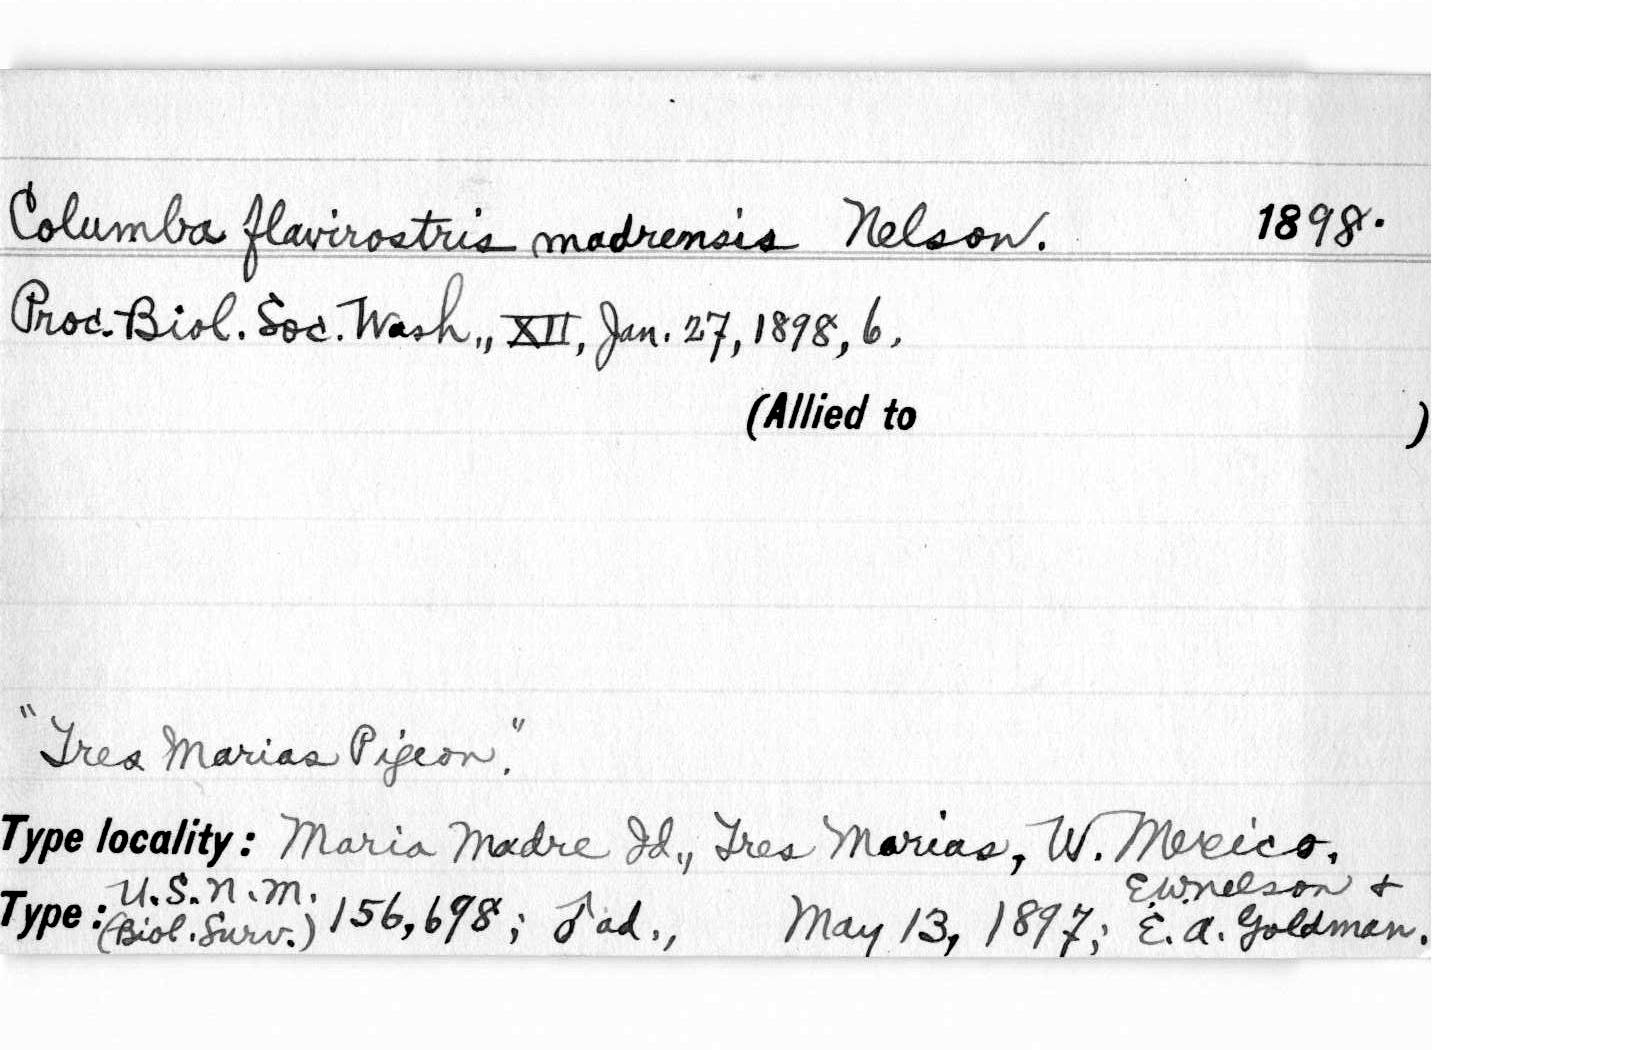 Columba flavirostris madrensis Nelson. 1898.
Proc. Biol. Soc. Wash., XII, Jan. 27, 1898, 6.
(Allied to )
"Tres Marias Pigeon."
Type locality: Maria Madre Id., Tres Marias, W. Mexico.
Type: U.S.N.M. (Biol. Surv.) 156,698; ♂ ad., May 13, 1897; E.W. Nelson & E. A. Goldman.